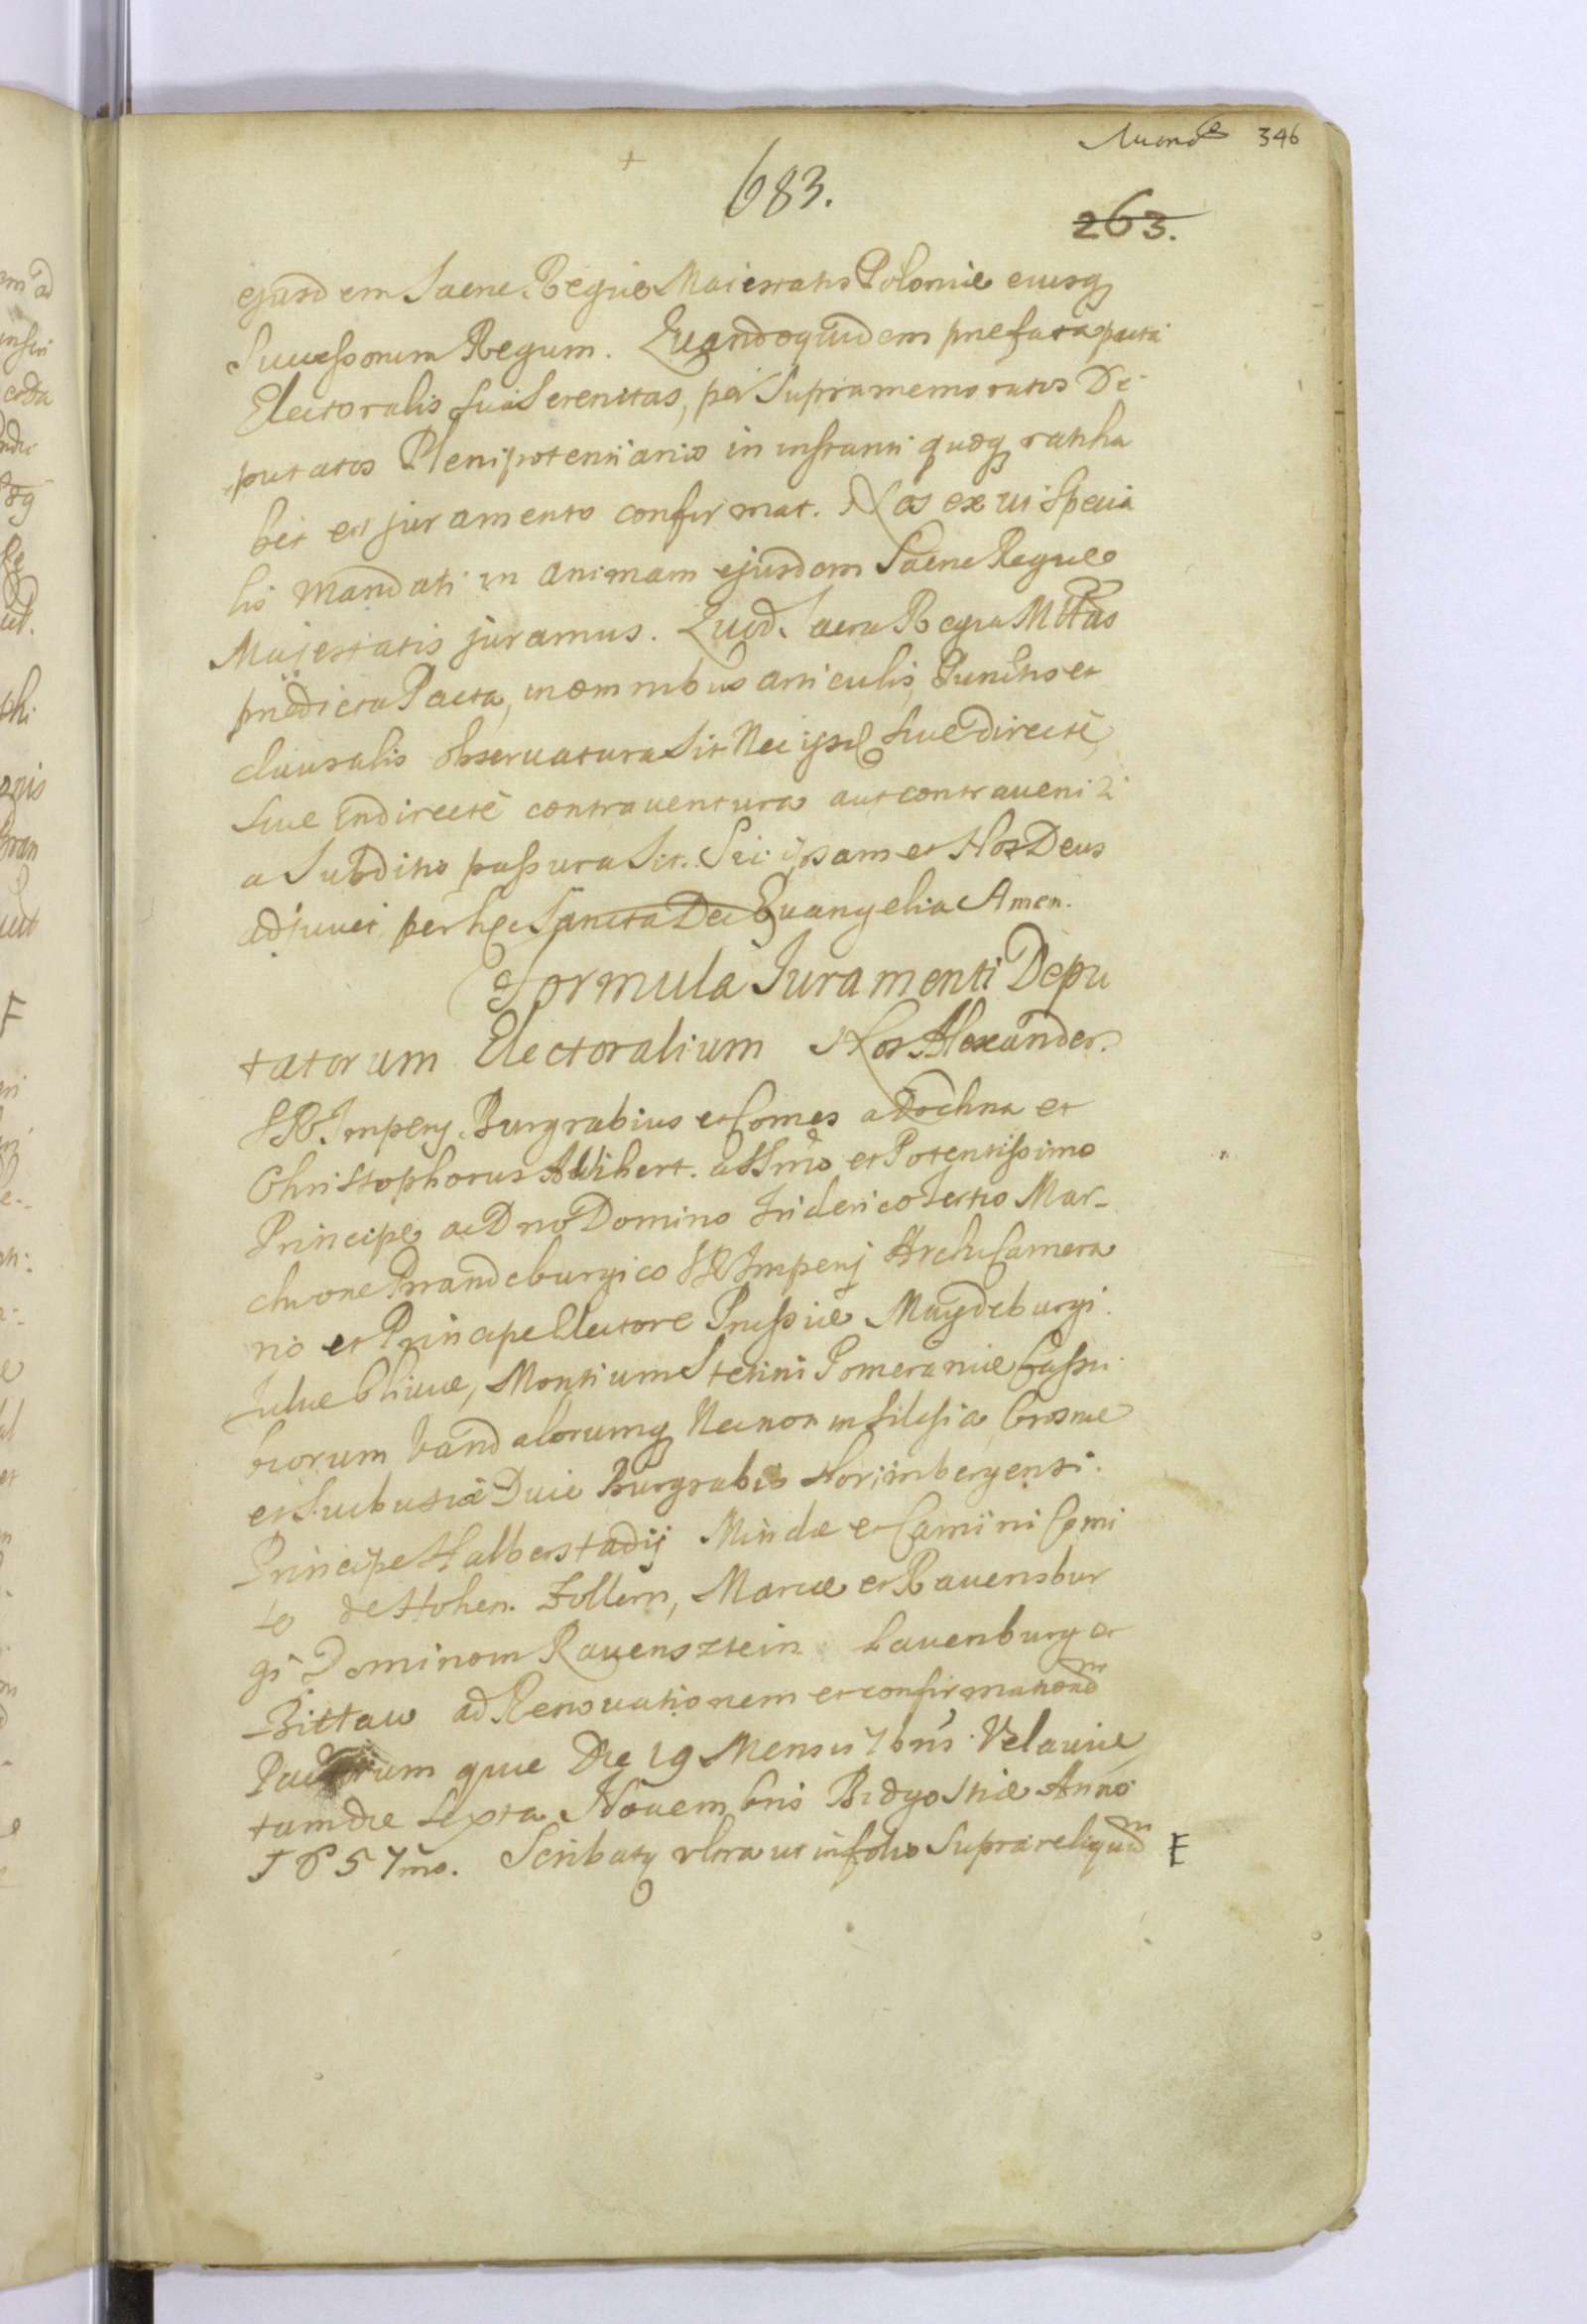 346
683.
263.
ejusdem Sacrae Regiae Maiestatis Poloniae eiusq
Successorum Regum. Quandoquidem praefata pacta
Electoralis sua Serenitas, per Supramemoratos De
putatos Plenipotentiarios in instanti quoq ratiha
bet et juramento confirmat. Nos ex vi Specia
lis mandati in animam ejusdem Sacrae Regiae
Majestatis juramus. Quod Sacra Regia Mttas
praedicta Pacta, in omnibus articulis, Punctis et
clausulis observatura sit Nec ipse siue directè
siue Indirectè contrauentura aut contraueniri
a Subditis passura sit. Sic ipsam et Nos Deus
adjuuet per haec Sancta Dei Euangelia Amen.
Formula Juramenti Depu
tatorum Electoralium Nos Alexander
S R Imperij Burgrabius et Comes a Dochna et
Christophorus A Wihert. a Ssmo et Potentissimo
Principe ac Dno Domino Friderico Tertio Mar-
chione Brandeburgico S R Imperij ArchiCamera
rio et Principe Electore Prussiae Magdeburgi
Juliae Cliviae, Montium Stetini Pomeraniae Cassu
biorum Vandalorumq Necnon in Silesia Crosnae
et Suibusiae Duce Burgrabio Norimbergensi
Principe Halberstadij Mindae et Camini Comi
te de Hohen Zollern, Marcae et Rauensbur
gi Domino in Rauensztein Lauenburg et
Bittaw ad Renouationem et confirmationem
Pactorum quae Die 19 Mensis 7bris Velauiae
tum die sexta Nouembris Bidgostiae Anno
1657mo. Scribatq vltra ut in folio Supra reliquum E